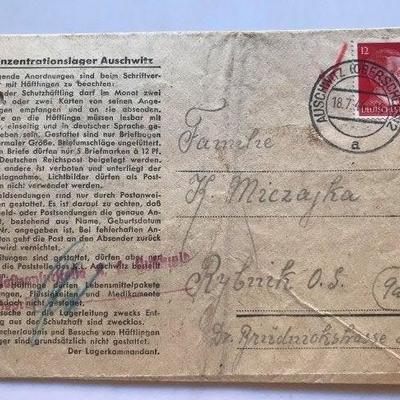 nzentrationslager Auschwitz
gende Anordnungen sind beim Schriftver-
mit Häftlingen zu beachten:
der Schutzhäftling darf im Monat zwei
oder zwei Karten von seinen Ange-
empfangen und an sie absenden.
an die Häftlinge müssen lesbar mit
einseitig und in deutscher Sprache ge-
ben sein. Gestattet sind nur Briefbogen
normaler Größe. Briefumschläge ungefüttert.
Briefe dürfen nur 5 Briefmarken à 12 Pf.
Deutschen Reichspost beigelegt werden.
andere ist verboten und unterliegt der
lagnahme. Lichtbilder dürfen als Post-
n nicht verwendet werden.
eldsendungen sind nur durch Postanwei-
gestattet. Es ist darauf zu achten, daß
eld- oder Postsendungen die genaue An-
bestehend aus Name, Geburtsdatum
Nr. angegeben ist. Bei fehlerhaften An-
ten geht die Post an den Absender zurück
wird vernichtet.
eitungen sind gestattet, dürfen
die Poststelle
Häftlinge Lebensmittelpakete
Flüssigkeiten und Medikamente
nicht gestattet.
uche an die Lagerleitung zwecks Ent-
g aus der Schutzhaft sind zwecklos.
cherlaubnis und Besuche von Häftlingen
ger sind grundsätzlich nicht gestattet.
Der Lagerkommandant.
12
AUSCHWITZ (OBERSCHLES) 2
18.7.
a
Familie
K. Miczajka
Rybnik O.S.